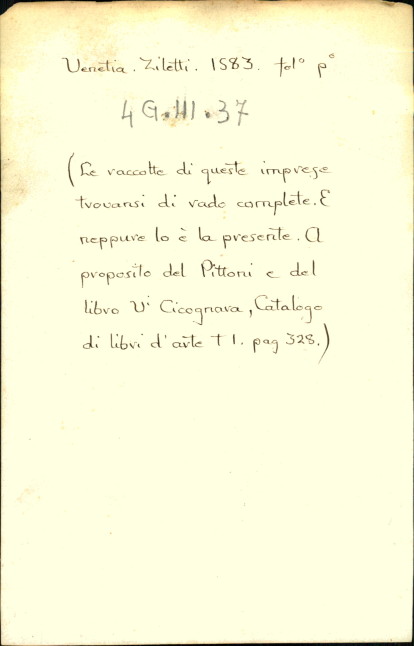 Venetia. Ziletti. 1583. fol° p°
4 G.III.37
(Le raccolte di queste imprese
trovansi di rado complete. E
neppure lo è la presente. A
proposito del Pittoni e del
libro Vi Cicognara, Catalogo
di libri d'arte t 1. pag 328.)